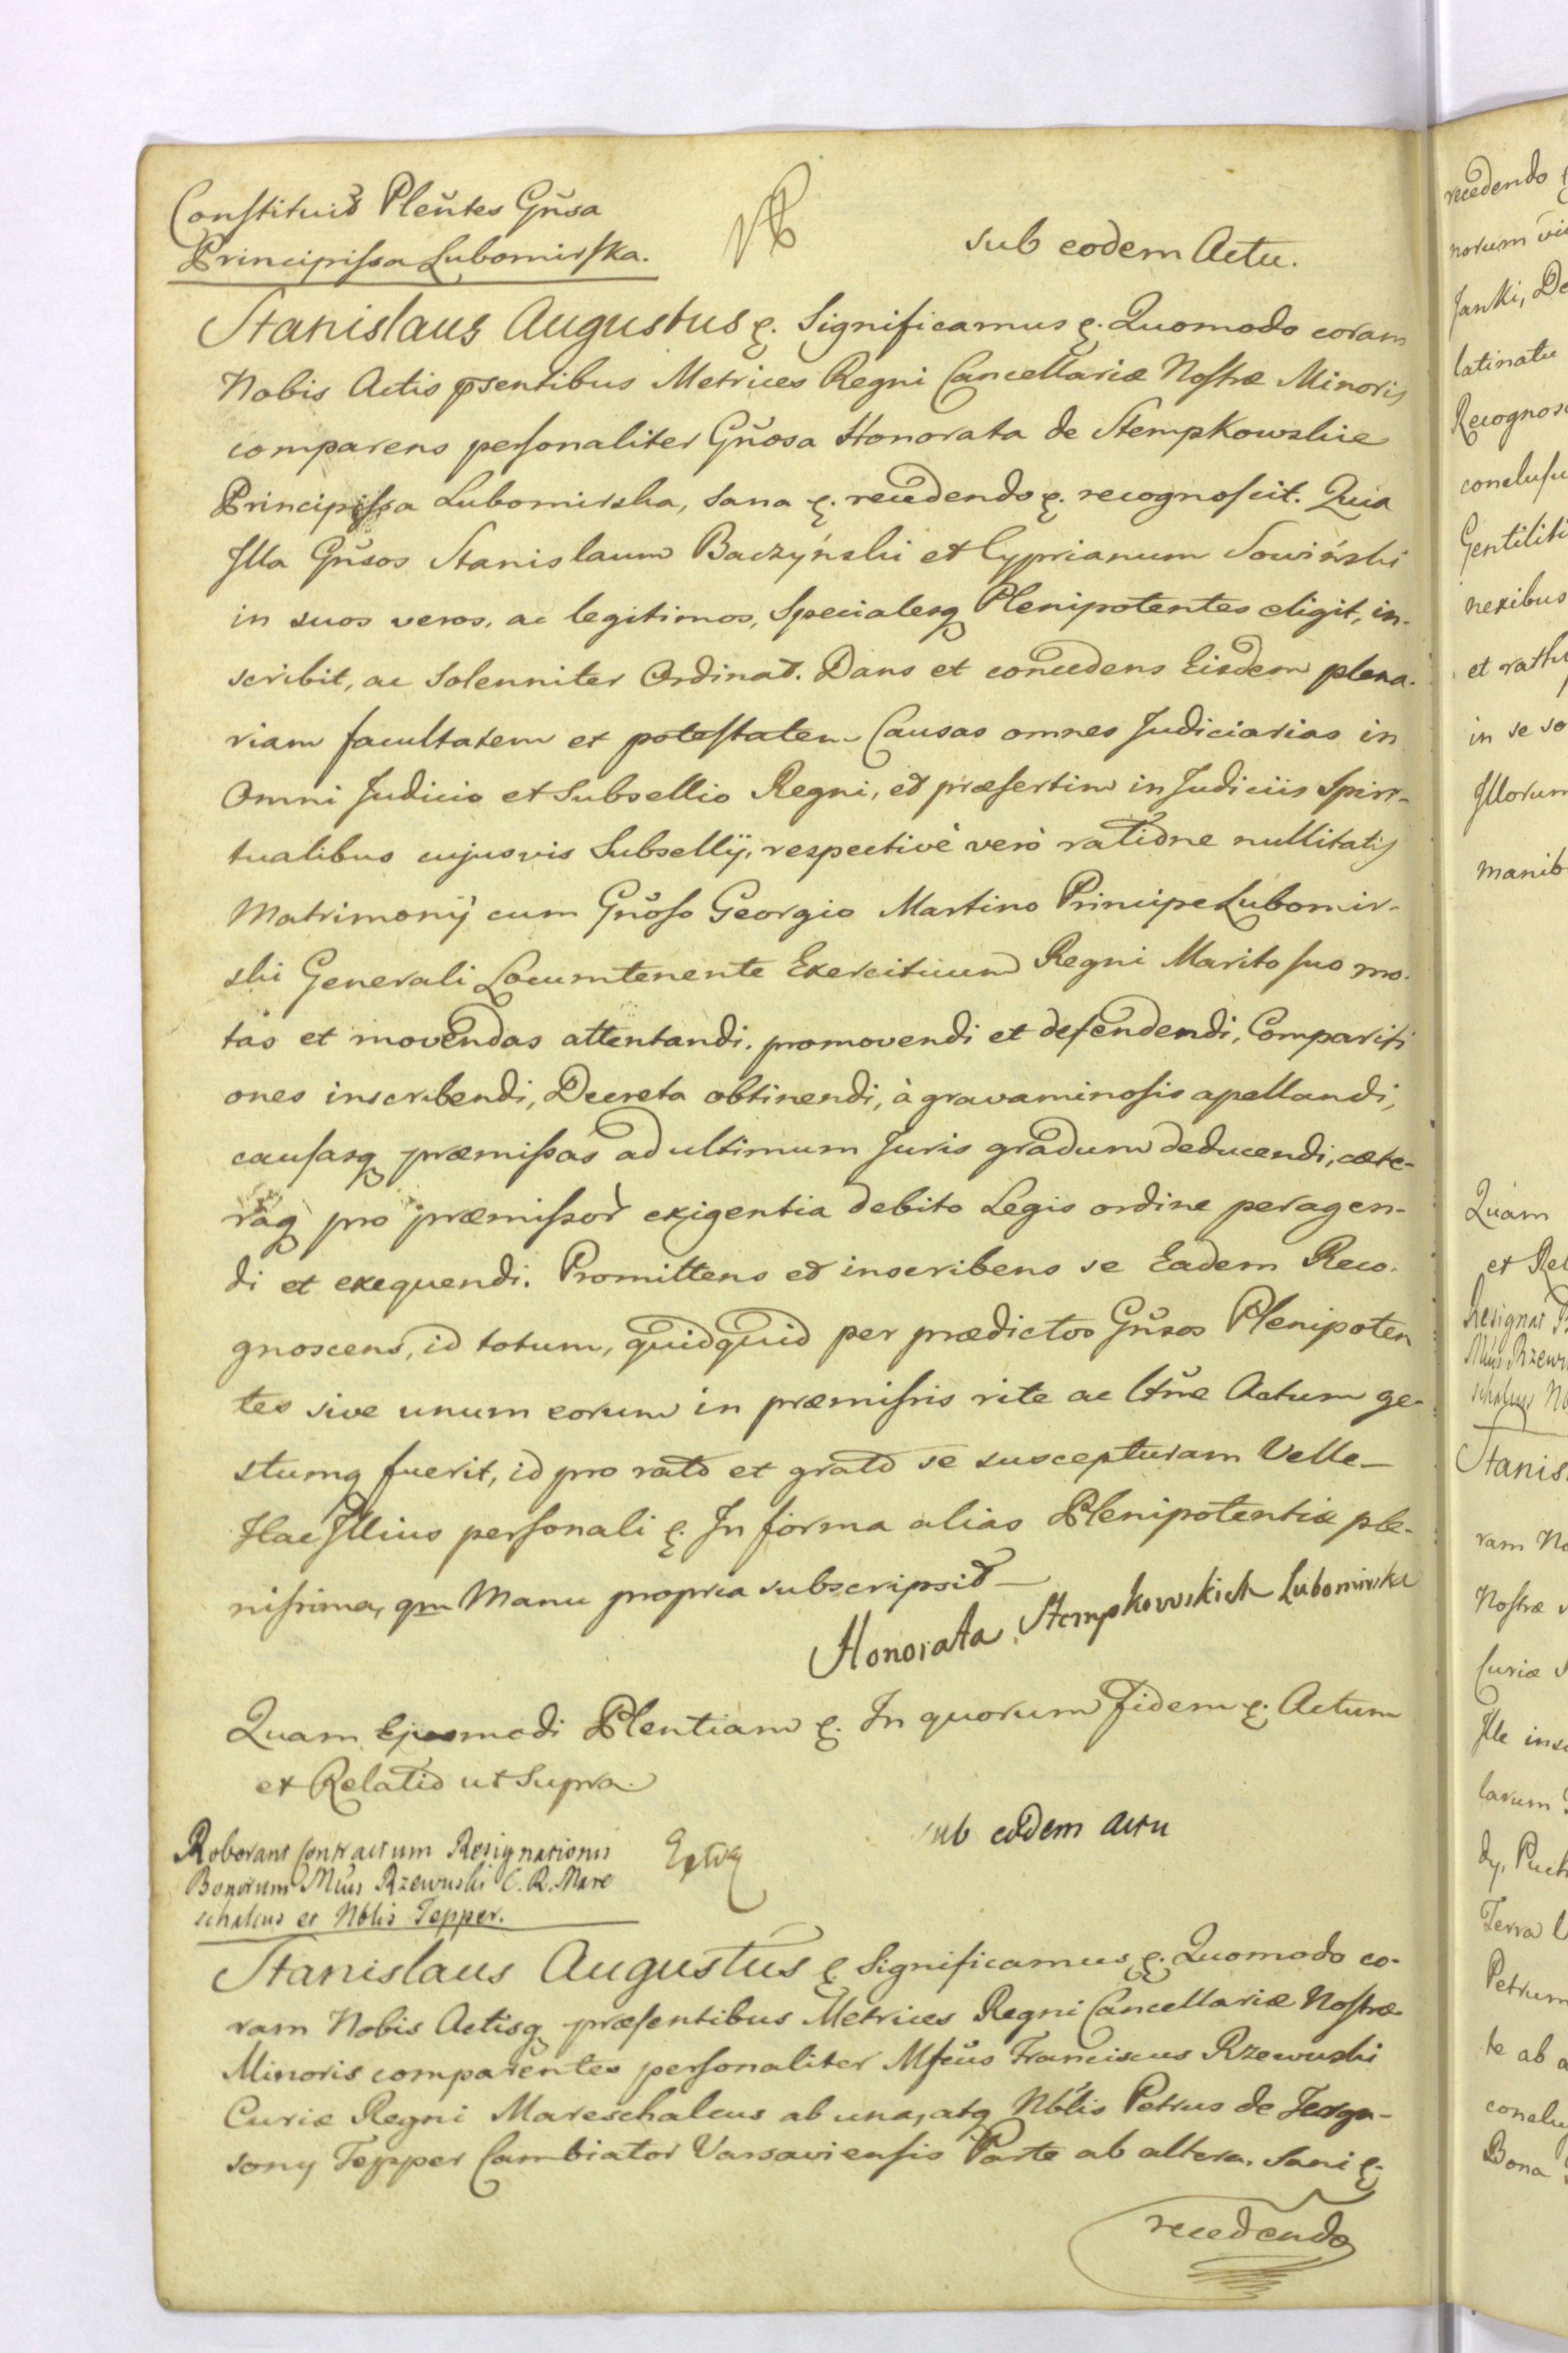 Constituit Plentes Gnsa
Principissa Lubomirska.
NB
Sub eodem Actu.
Stanislaus Augustus &. Significamus &. Quomodo coram
Nobis Actis psentibus Metrices Regni Cancellariæ Nostræ Minoris
comparens personaliter Gnosa Honorata de Stempkowskie
Principissa Lubomirska, sana &. recedendo &. recognoscit. Quia
Illa Gnsos Stanislaum Baczyński et Cyprianum Sowiński
in suos veros, ac legitimos, Specialesq Plenipotentes eligit, in-
scribit, ac Solenniter Ordinat. Dans et concedens Eisdem plena-
riam facultatem et potestatem Causas omnes Judiciarias in
Omni Judicio et Subsellio Regni, et præsertim in Judiciis Spiri-
tualibus cujusvis Subsellij, respectivè verò ratione nullitatis
Matrimonij cum Gnoso Georgio Martino Principe Lubomir-
ski Generali Locumtenente Exercituum Regni Marito suo mo-
tas et movendas attentandi, promovendi et defendendi, Compariti
ones inscribendi, Decreta obtinendi, à gravaminosis apellandi,
causasq præmissas ad ultimum Juris gradum deducendi, cæte-
raq pro præmissor exigentia debito Legis ordine peragen-
di et exequendi. Promittens et inscribens se Eadem Reco-
gnoscens, id totum, quidquid per prædictos Gnsos Plenipoten
tes sive unum eorum in præmissis rite ac ltme Actum ge-
stumq fuerit, id pro rato et grato se suscepturam Velle_
Hac Illius personali &. In forma alias Plenipotentiæ ple-
nissima, qm Manu propria subscripsit_
Honorata Stempkowskich Lubomirska
Quam Ejusmodi Plentiam &. In quorum fidem &. Actum
et Relatio ut Supra.
Roborant Contractum Resignationis
Bonorum Mcus Rzewuski C. R. Mare
schalcus et Nblis Tepper.
sub eodem actu
Stanislaus Augustus &. Significamus &. Quomodo co-
ram Nobis Actisq præsentibus Metrices Regni Cancellariæ Nostræ
Minoris comparentes personaliter Mfcus Franciscus Rzewuski
Curiæ Regni Mareschalcus ab una, atq Nblis Petrus de Fergu-
sony Tepper Cambiator Varsaviensis Parte ab altera. Sani &.
recedendo
recedendo
norum
Janki, De
latinatu
Recognos
conclusu
Gentiliti
nexibus
et rath
in se so
Illorum
manib
Quam
et Rel
Resignat
Mcus Rzew
schalcus No
Stanis
ram No
Nostræ
Curiæ
Ille ins
larum
dy, Puch
Terra
Petrum
te ab a
conclu
Bona